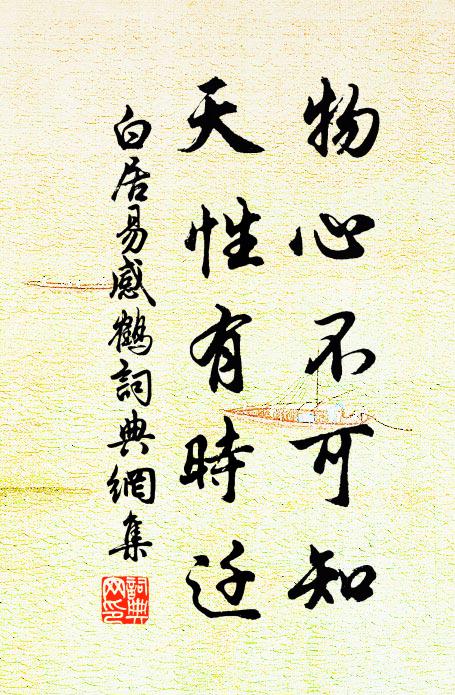 物心不可知
天性有時迁
白居易感鶴詞典網集
詞典網印